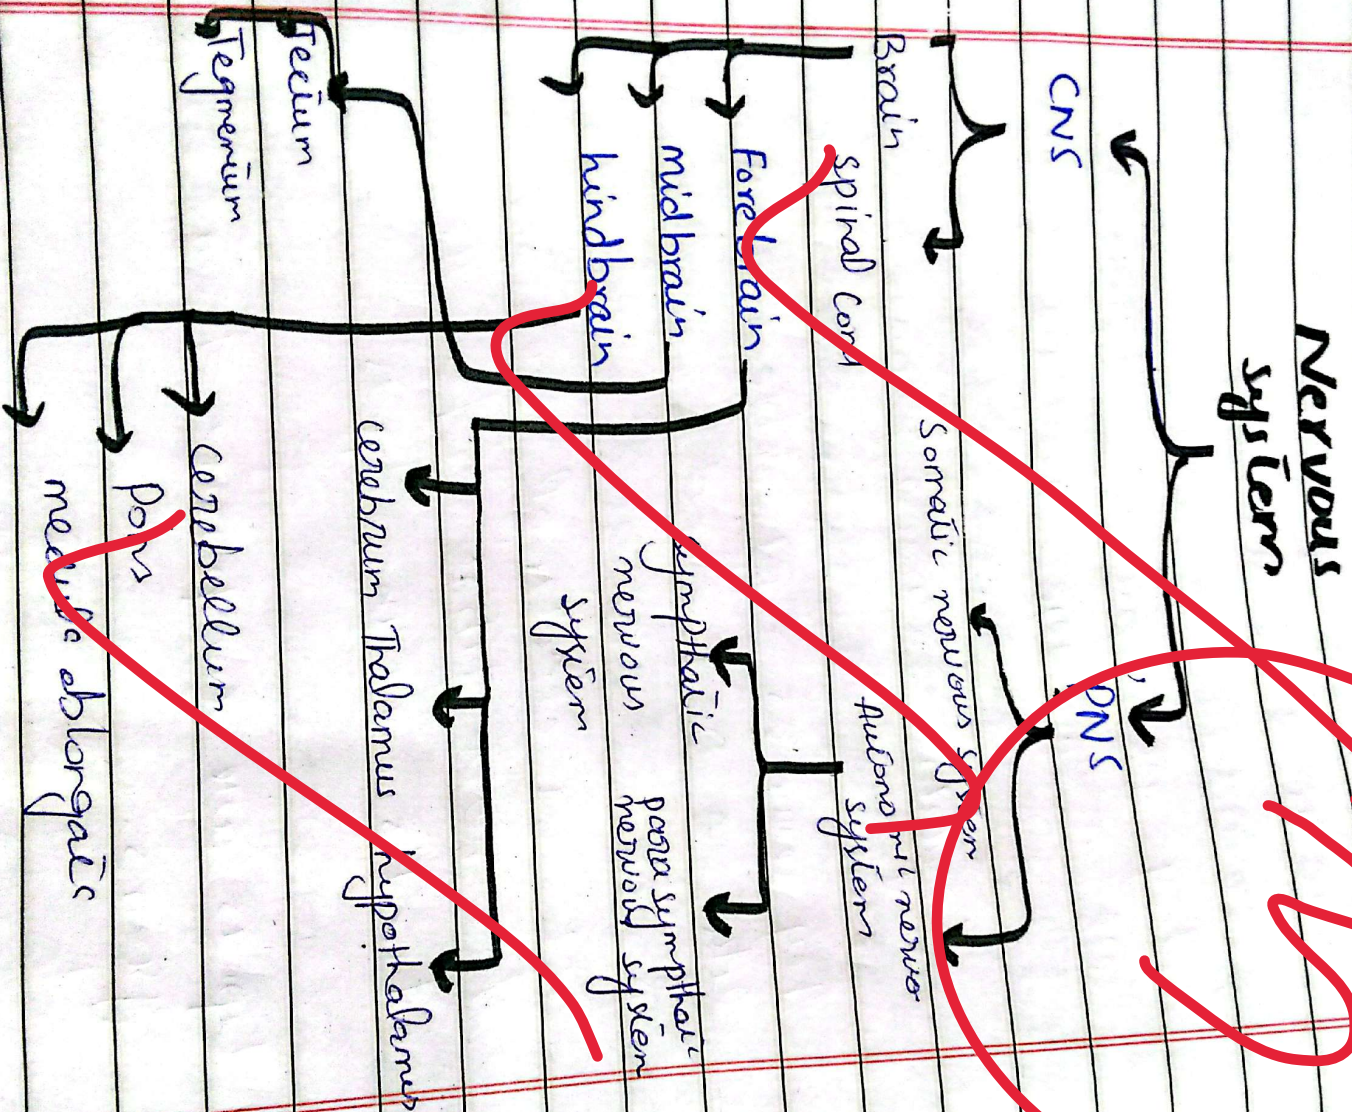 Nervous
system
CNS
PNS
Brain
spinal Cord
Somatic nervous system
nervous
system
Forebrain
midbrain
hindbrain
sympthatic
nervous
system
parasympthatic
nervous system
cerebrum Thalamus hypothalamus
Tectum
Tegmentum
Cerebellum
Pons
oblongata